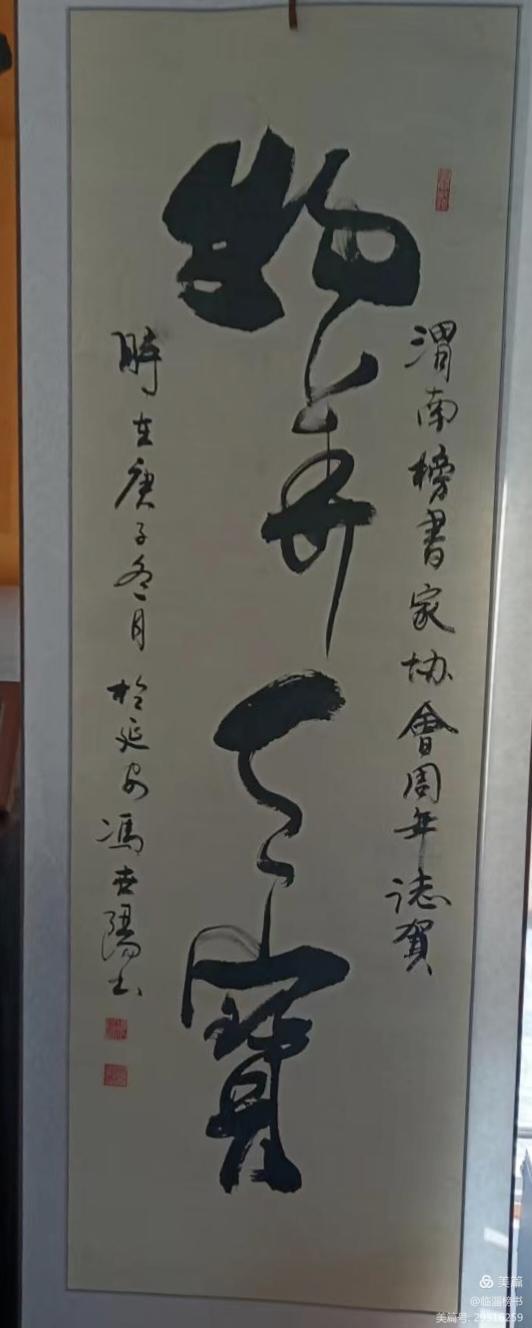 渭南榜書家協會周年誌賀
物華天寶
時在庚子冬月於延安馮世陽書
美篇
@临淄榜书
美篇号: 29516259